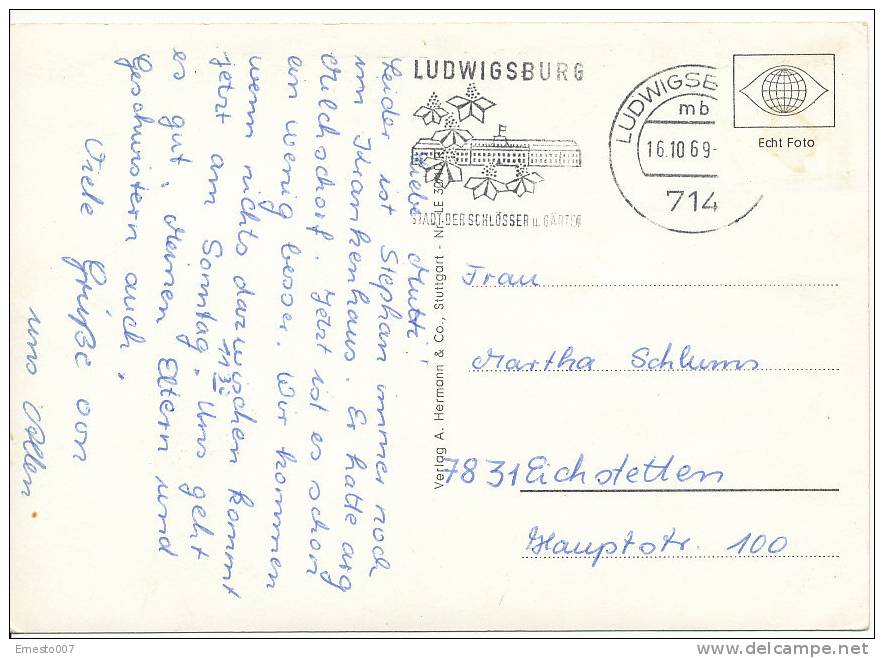 Liebe Mutti!
Leider ist Stephan immer noch
im Krankenhaus. Er hatte arg
Milchschorf. Jetzt ist es schon
ein wenig besser. Wir kommen
wenn nichts dazwischen kommt
jetzt am Sonntag. 11 Uns geht
es gut, meinen Eltern und
Geschwistern auch.
Viele Grüße von
uns Allen.
LUDWIGSBURG
STADT DER SCHLÖSSER u. GÄRTEN
LUDWIGSB
mb
16.10 69-
714
Echt Foto
Verlag A. Hermann & Co., Stuttgart - Nr. LE
Frau
Martha Schlums
7831 Eichstetten
Hauptstr. 100
Ernesto007
delcampe.net